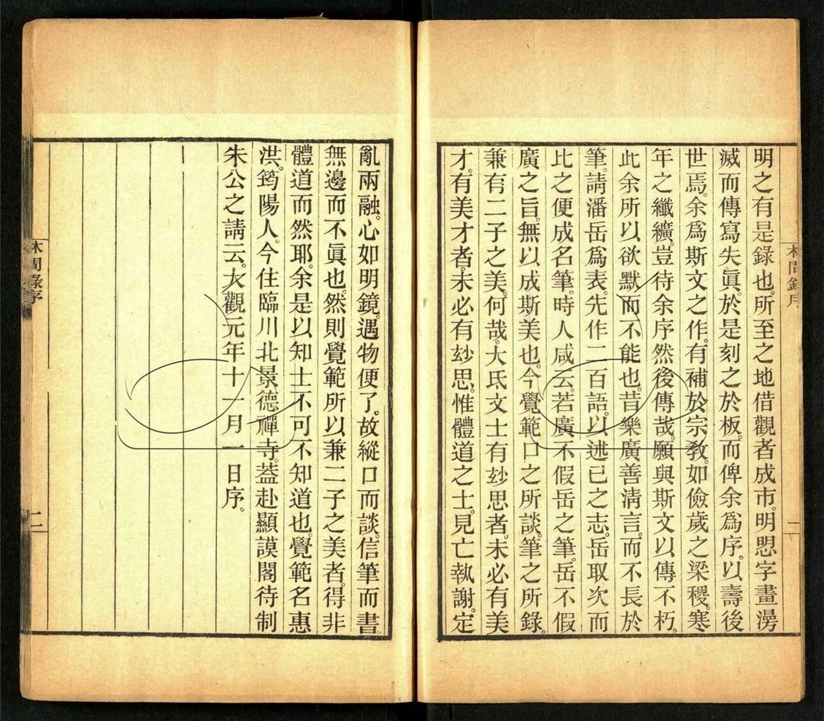 明之有是錄也。所至之地借觀者成市。明愳字畫漫
滅而傳寫失眞。於是刻之於板。而俾余爲序。以壽後
世焉。余爲斯文之作。有補於宗敎。如儉歲之梁稷。寒
年之纖纊。豈待余序然後傳哉。願與斯文以傳不朽。
此余所以欲默而不能也。昔樂廣善淸言。而不長於
筆。請潘岳爲表。先作二百語。以述已之志。岳取次而
比之。便成名筆。時人咸云。若廣不假岳之筆。岳不假
廣之旨。無以成斯美也。今覺範口之所談。筆之所錄。
兼有二子之美。何哉。大氐文士有玅思者。未必有美
才。有美才者。未必有玅思。惟體道之士。見亡執謝。定
林間錄序
二
亂兩融。心如明鏡。遇物便了。故縱口而談。信筆而書。
無邊而不眞也。然則覺範所以兼二子之美者。得非
體道而然耶。余是以知士不可不知道也。覺範名惠
洪。筠陽人。今住臨川北景德禪寺。葢赴顯謨閣待制
朱公之請云。大觀元年十一月一日序。
林間錄序
二